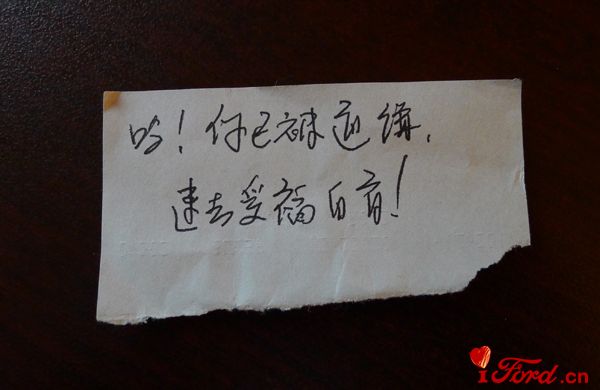 哈！你已被通缉，
速去爱福自首！
iFord.cn